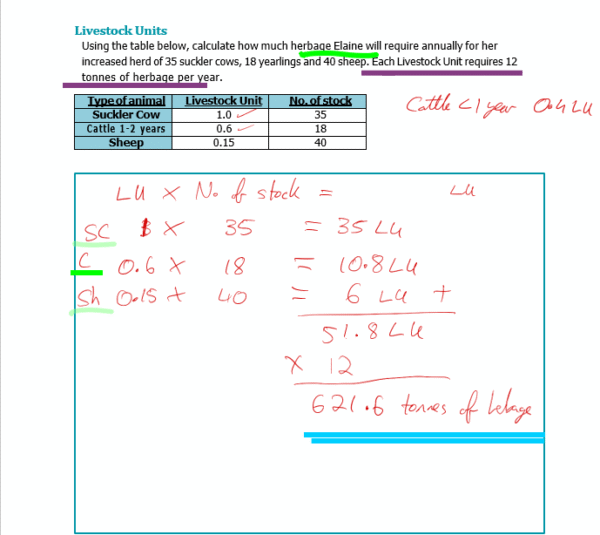 Livestock Units
Using the table below, calculate how much herbage Elaine will require annually for her
increased herd of 35 suckler cows, 18 yearlings and 40 sheep. Each Livestock Unit requires 12
tonnes of herbage per year.
Type of animal Livestock Unit No. of stock
Suckler Cow 1.0 35
Cattle 1-2 years 0.6 18
Sheep 0.15 40
Cattle <1 year 0.4 LU
LU x No. of stock = LU
SC 1 x 35 = 35 LU
C 0.6 x 18 = 10.8 LU
Sh 0.15 x 40 = 6 LU +
51.8 LU
x 12
621.6 tonnes of